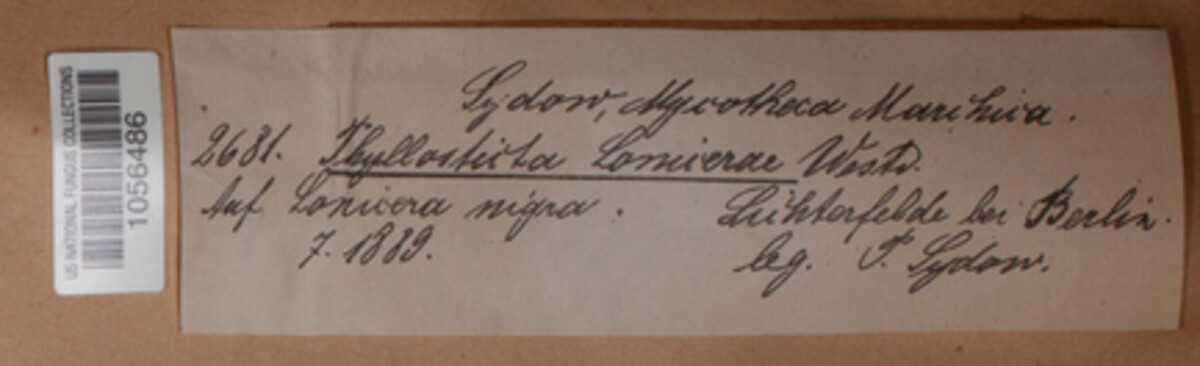 US NATIONAL FUNGUS COLLECTIONS
1056486
Sydow, Mycotheca Marchica.
2681. Phyllosticta Lonicerae Westd.
Auf Lonicera nigra. Lichterfelde bei Berlin.
7. 1889. leg. P. Sydow.